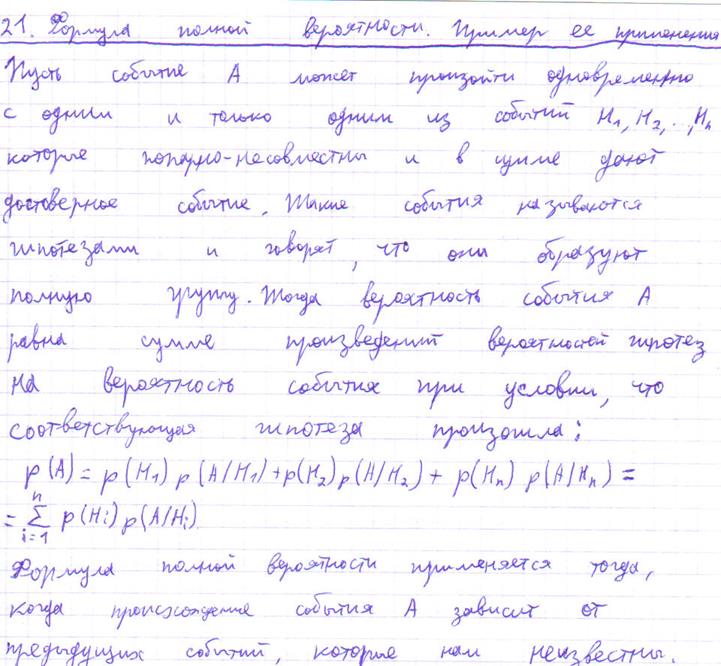 21. Формула полной вероятности. Пример ее применения
Пусть событие A может произойти одновременно
с одним и только одним из событий H₁, H₂, .., Hₙ
которые попарно-несовместны и в сумме дают
достоверное событие. Такие события называются
гипотезами и говорят, что они образуют
полную группу. Тогда вероятность события A
равна сумме произведений вероятностей гипотез
на вероятность события при условии, что
соответствующая гипотеза произошла:
p(A) = p(H₁) p(A/H₁) + p(H₂) p(A/H₂) + p(Hₙ) p(A/Hₙ) =
= ∑ᵢ₌₁ⁿ p(Hᵢ) p(A/Hᵢ)
Формула полной вероятности применяется тогда,
когда происхождение события A зависит от
предыдущих событий, которые нам неизвестны.